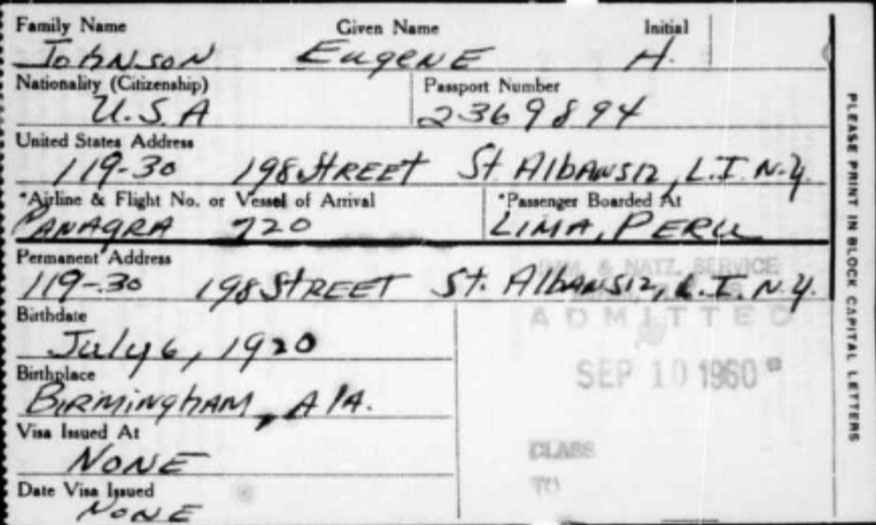 Family Name Given Name Initial
Johnson Eugene H.
Nationality (Citizenship) Passport Number
U.S.A 2369894
United States Address
119-30 198 Street St Albans 12, L.I. N.Y.
*Airline & Flight No. or Vessel of Arrival *Passenger Boarded At
PANAGRA 720 LIMA, PERU
Permanent Address
119-30 198 Street St. Albans 12, L.I. N.Y.
IMM. & NATZ. SERVICE
Birthdate
ADMITTED
July 6, 1920
SEP 10 1960
Birthplace
Birmingham, Ala.
Visa Issued At
NONE
CLASS
TO
Date Visa Issued
NONE
PLEASE PRINT IN BLOCK CAPITAL LETTERS